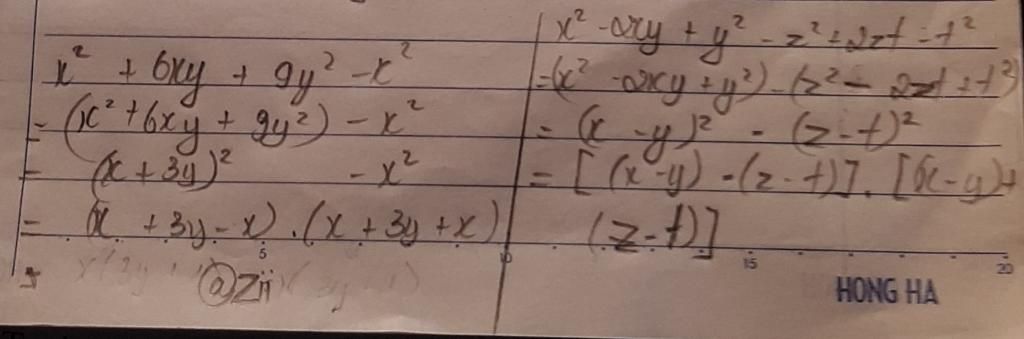 x² + 6xy + 9y² - x²
= (x² + 6xy + 9y²) - x²
= (x + 3y)² - x²
= (x + 3y - x) . (x + 3y + x)
x² - 2xy + y² - z² + 2zt - t²
= (x² - 2xy + y²) - (z² - 2zt + t²)
= (x - y)² - (z - t)²
= [(x - y) - (z - t)] . [(x - y) +
(z - t)]
5 10 15 20
@Zii
HONG HA